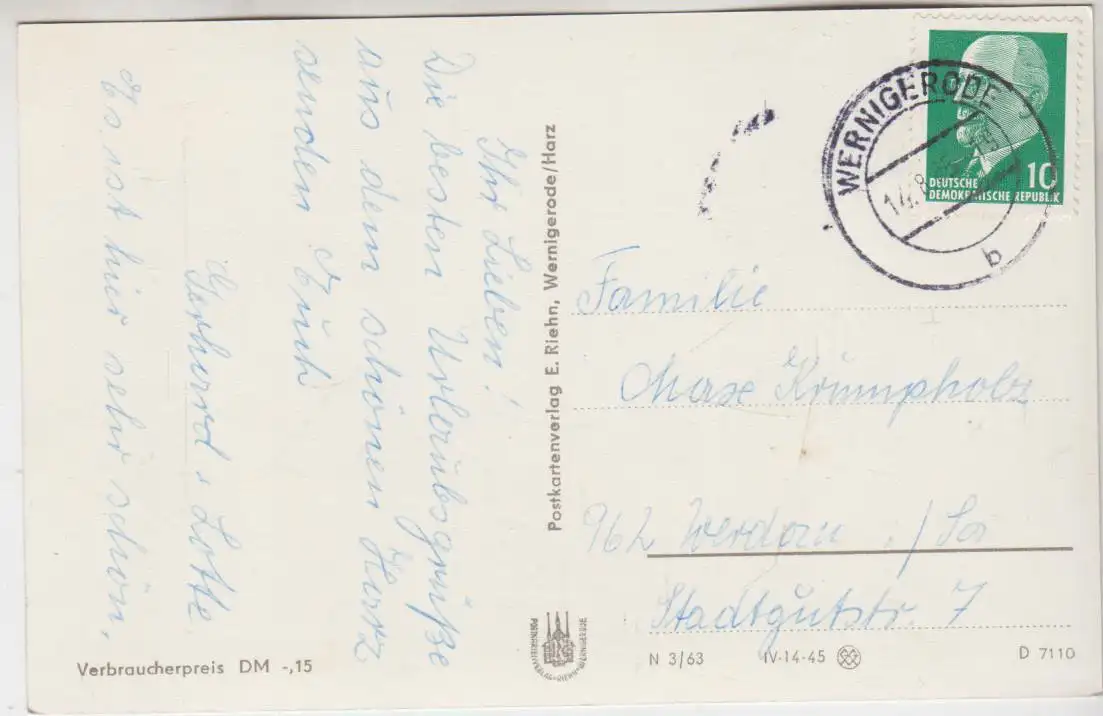 Ihr Lieben!
Die besten Urlaubsgrüße
aus dem schönen Harz
senden Euch
Gerhard u. Lotte.
Es ist hier sehr schön.
Postkartenverlag E. Riehn, Wernigerode/Harz
WERNIGERODE
b
10
DEUTSCHE
DEMOKRATISCHE REPUBLIK
Familie
Max Krumpholz
962 Werdau /Sa
Stadtgutstr. 7
Verbraucherpreis DM -,15
POSTKARTENVERLAG·RIEHN·WERNIGERODE
N 3/63 IV-14-45 D 7110